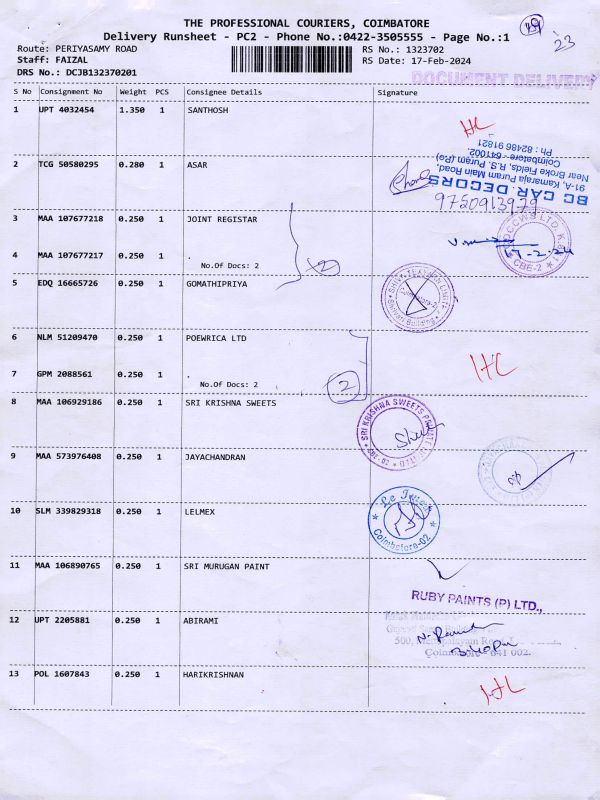 THE PROFESSIONAL COURIERS, COIMBATORE
Delivery Runsheet - PC2 - Phone No.:0422-3505555 - Page No.:1
Route: PERIYASAMY ROAD
RS No.: 1323702
Staff: FAIZAL
RS Date: 17-Feb-2024
DRS No.: DCJB132370201
23
DOCUMENT DELIVERY
S No Consignment No Weight PCS Consignee Details Signature
1 UPT 4032454 1.350 1 SANTHOSH
HL
BC CAR DECORS
91-A, Kamaraja Puram Main Road,
Near Broke Fields, R.S. Puram (Po)
Coimbatore - 641002.
Ph : 82486 91821
2 TCG 50580295 0.280 1 ASAR
9750913979
3 MAA 107677218 0.250 1 JOINT REGISTAR
17-2-24
CBE-2
4 MAA 107677217 0.250 1 .
No.Of Docs: 2
2
5 EDQ 16665726 0.250 1 GOMATHIPRIYA
6 NLM 51209470 0.250 1 POEWRICA LTD
HL
7 GPM 2088561 0.250 1 .
No.Of Docs: 2
2
8 MAA 106929186 0.250 1 SRI KRISHNA SWEETS
SRI KRISHNA SWEETS PRIVATE LIMITED
CBE-02
9 MAA 573976408 0.250 1 JAYACHANDRAN
10 SLM 339829318 0.250 1 LELMEX
Coimbatore-02
11 MAA 106890765 0.250 1 SRI MURUGAN PAINT
RUBY PAINTS (P) LTD.,
12 UPT 2205881 0.250 1 ABIRAMI
Coimbatore - 641 002.
13 POL 1607843 0.250 1 HARIKRISHNAN
HL